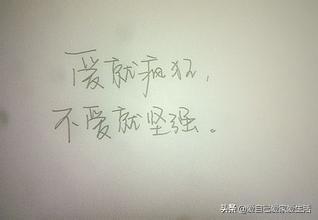 爱就疯狂，
不爱就坚强。
头条 @爱自己爱家爱生活